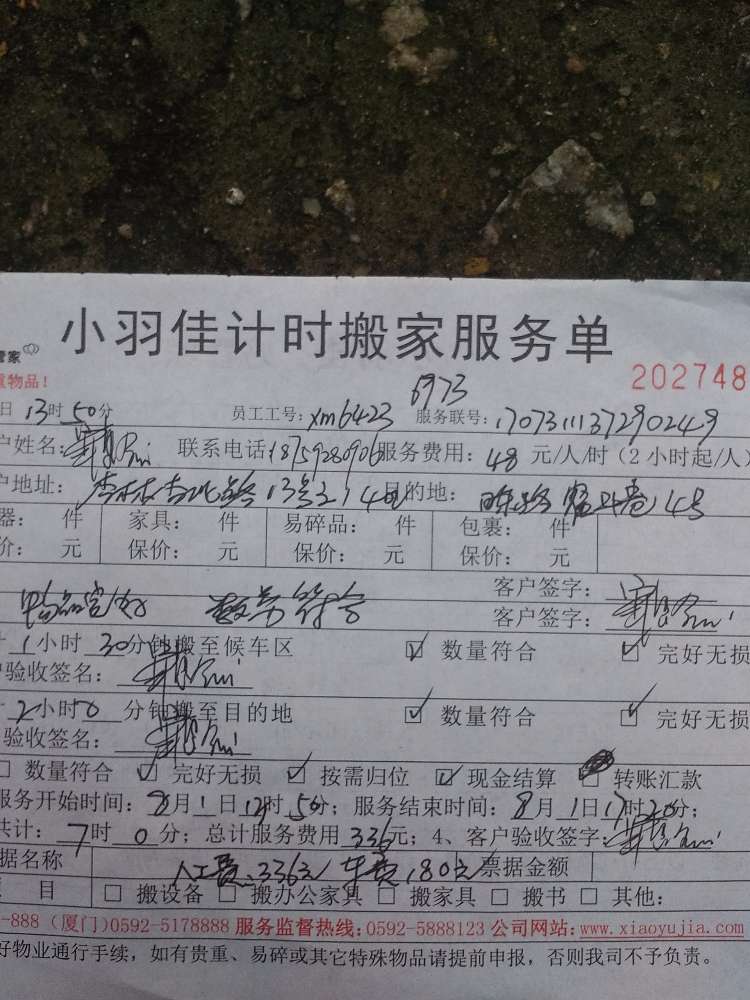 小羽佳计时搬家服务单
管家
重物品！
202748
6973
日 13时50分 员工工号: xm6423 服务联号: 170731113729024 9
户姓名: 联系电话: 18759280906 服务费用: 48 元/人/时（2小时起/人）
户地址: 13号 目的地: 4号
器: 件 家具: 件 易碎品: 件 包裹: 件
价: 元 保价: 元 保价: 元 保价: 元
客户签字:
物品完好 数量符合 客户签字:
1小时30分钟搬至候车区 ☑ 数量符合 ☑ 完好无损
户验收签名:
2小时50分钟搬至目的地 ☑ 数量符合 ☑ 完好无损
验收签名:
□ 数量符合 ☑ 完好无损 ☑ 按需归位 ☑ 现金结算 转账汇款
服务开始时间: 8月1日 时50分；服务结束时间: 8月1日17时20分；
共计: 7时0分；总计服务费用336元；4、客户验收签字:
据名称 人工费:336元 车费:180元 票据金额
项 目 □ 搬设备 □ 搬办公家具 □ 搬家具 □ 搬书 □ 其他:
-888（厦门)0592-5178888 服务监督热线: 0592-5888123 公司网站: www.xiaoyujia.com
好物业通行手续，如有贵重、易碎或其它特殊物品请提前申报，否则我司不予负责。